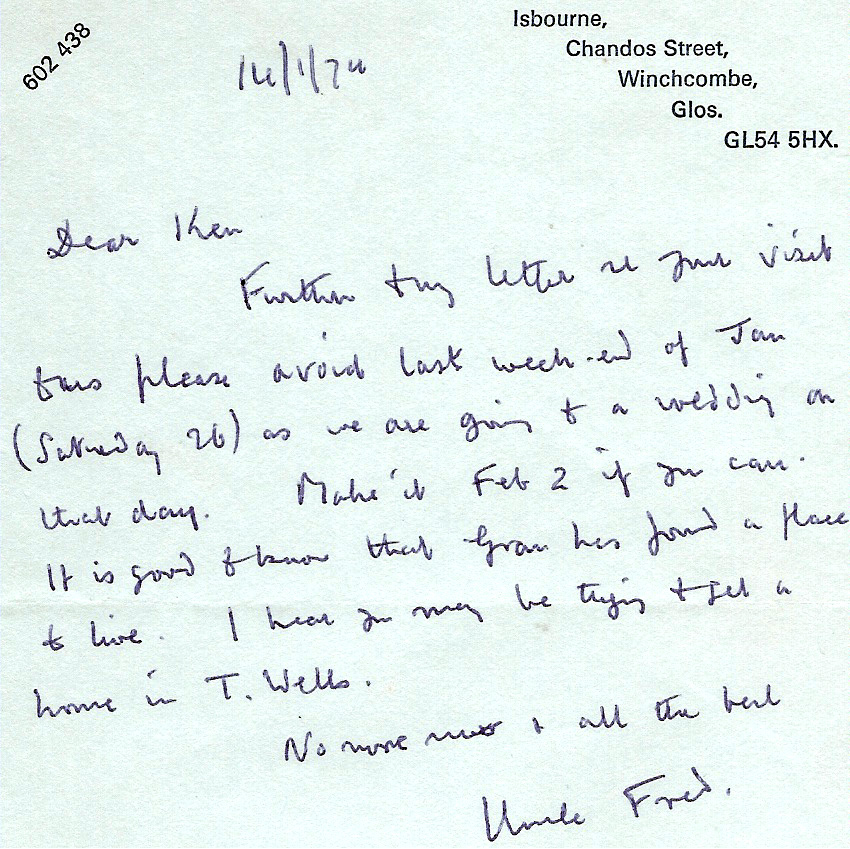 602 438
Isbourne,
Chandos Street,
Winchcombe,
Glos.
GL54 5HX.
14/1/74
Dear Ken
Further to my letter re your visit
please avoid last week-end of Jan
(Saturday 26) as we are going to a wedding on
that day. Make it Feb 2 if you can.
It is good to know that Gran has found a place
to live. I hear you may be trying to get a
home in T. Wells.
No more news + all the best
Uncle Fred.